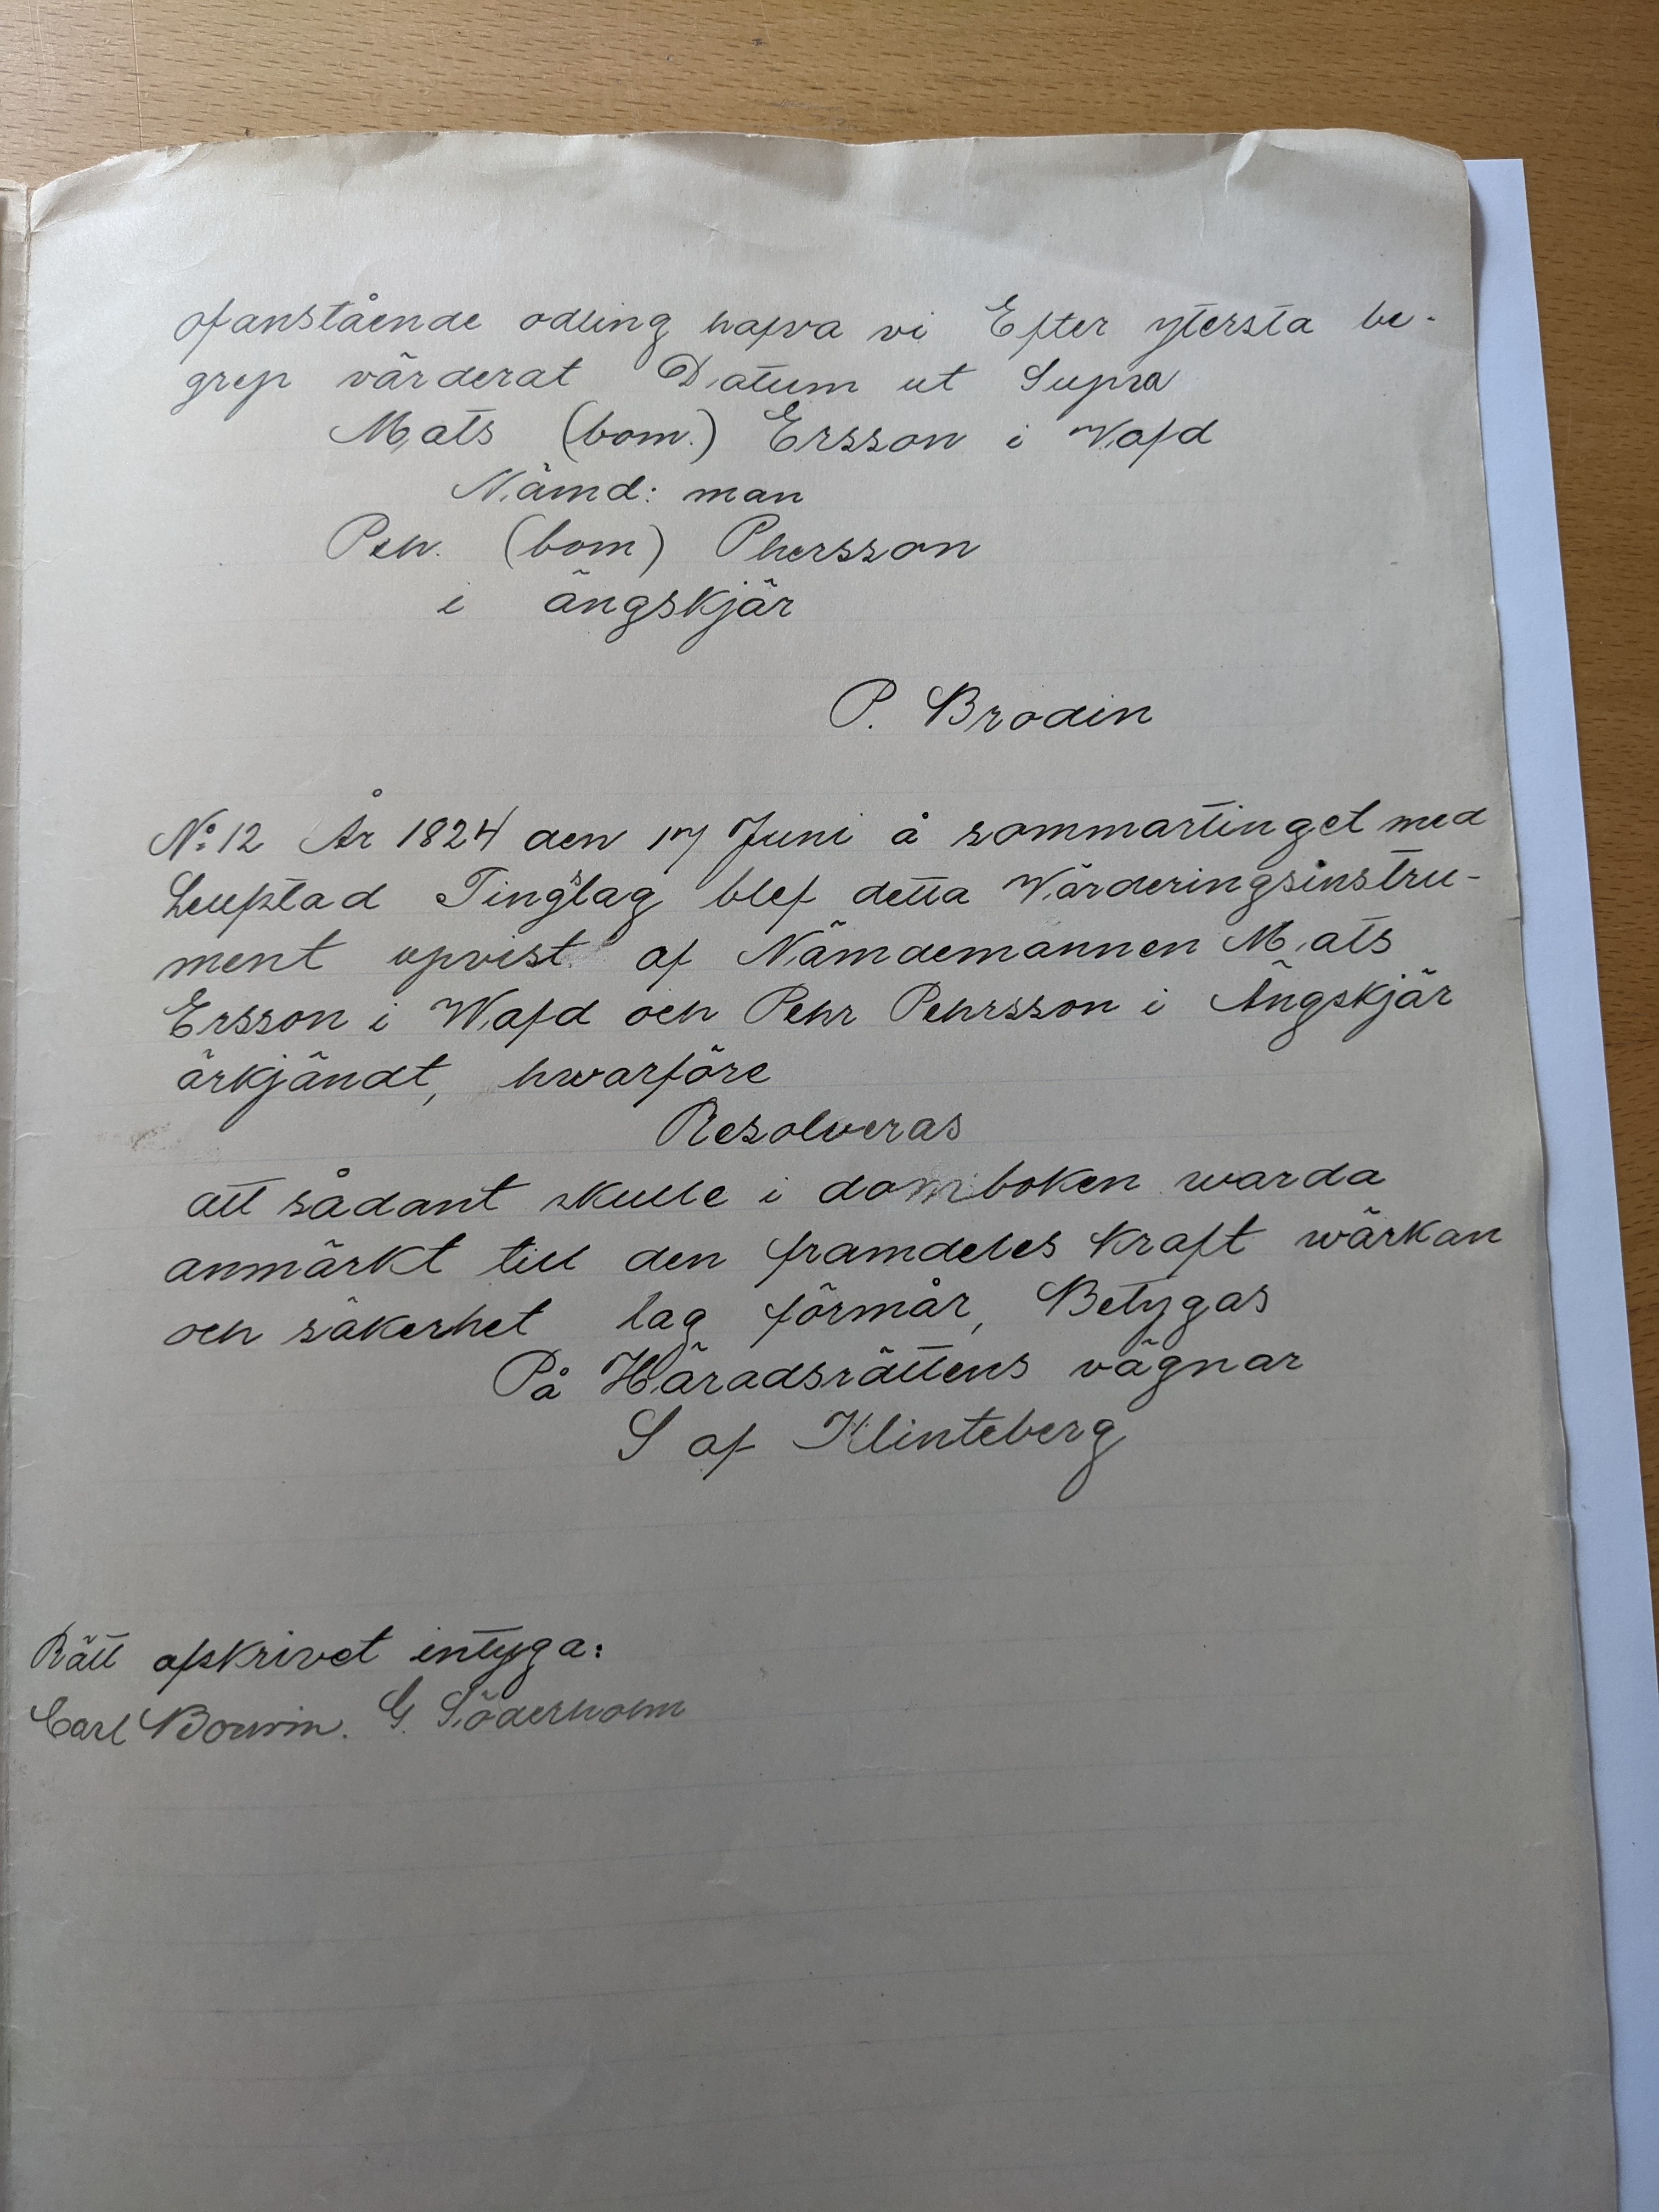 ofanstående odling hafva vi Efter ytersta be-
grep värderat Datum ut Supra
Mats (bom.) Ersson i Wafd
Nämd: man
Peh. (bom) Phersson
i ängskjär
P. Brodin
No: 12 År 1824 den 17 Juni å sommartinget med
Leufstad Tingslag blef detta Wärderingsinstru-
ment upvist af Nämdemannen Mats
Ersson i Wafd och Pehr Pehrsson i Ängskjär
ärkjändt, hwarföre
Resolveras
att sådant skulle i domboken warda
anmärkt till den framdeles kraft wärkan
och säkerhet lag förmår, Betygas
På Häradsrättens vägnar
S af Klinteberg
Rätt afskrivet intyga:
Carl Bouvin. G. Söderholm